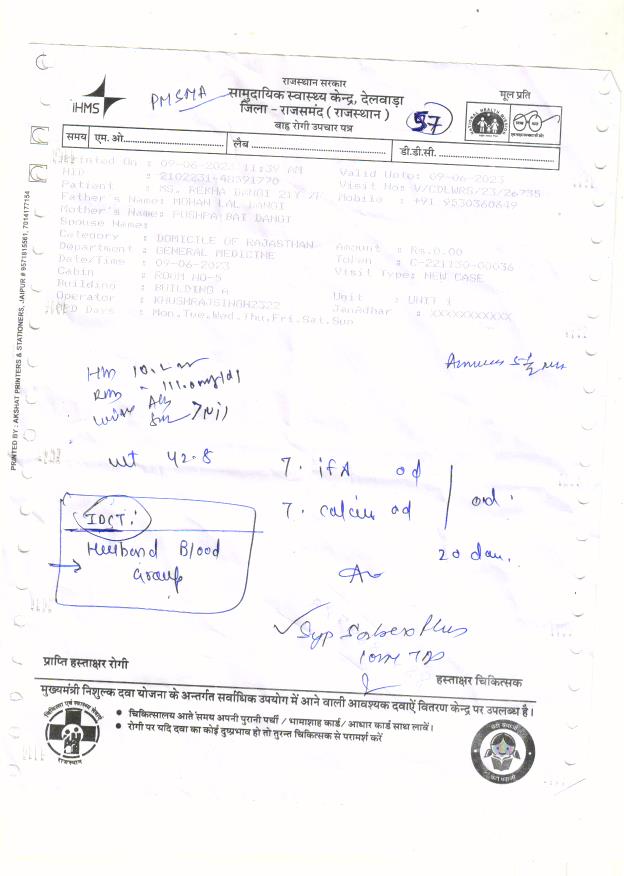 राजस्थान सरकार
iHMS
PMSMA
सामुदायिक स्वास्थ्य केन्द्र, देलवाड़ा
जिला - राजसमंद ( राजस्थान )
बाह्य रोगी उपचार पत्र
57
मूल प्रति
समय एम. ओ. लैब डी.डी.सी.
Printed On : 09-06-2023 11:39 AM Valid Upto: 09-06-2023
HID : Visit No: V/CDLWRS/23/26735
Patient : MS. REKHA DANGI 21Y /F Mobile : +91 9530360649
Father's Name: MOHAN LAL DANGI
Mother's Name: PUSHPA BAI DANGI
Spouse Name:
Category : DOMICILE OF RAJASTHAN Amount : Rs.0.00
Department : GENERAL MEDICINE Token : C-221150-00036
Date/Time : 09-06-2023 Visit Type: NEW CASE
Cabin : ROOM NO-5
Building : BUILDING A Unit : UNIT 1
Operator : KHUSHRAJSINGH2322 JanAdhar : XXXXXXXXXXX
OPD Days : Mon,Tue,Wed,Thu,Fri,Sat,Sun
PRINTED BY : AKSHAT PRINTERS & STATIONERS, JAIPUR # 9571815561, 7014177154
111.0 mg/dl
Nil
wt 42.8
T. ifA od
T. calcium od
od
20
IDCT:
Husband Blood
Group
Syp
प्राप्ति हस्ताक्षर रोगी
हस्ताक्षर चिकित्सक
मुख्यमंत्री निशुल्क दवा योजना के अन्तर्गत सर्वाधिक उपयोग में आने वाली आवश्यक दवाऐं वितरण केन्द्र पर उपलब्ध है।
• चिकित्सालय आते समय अपनी पुरानी पर्ची / भामाशाह कार्ड / आधार कार्ड साथ लावें।
• रोगी पर यदि दवा का कोई दुष्प्रभाव हो तो तुरन्त चिकित्सक से परामर्श करें
राजस्थान